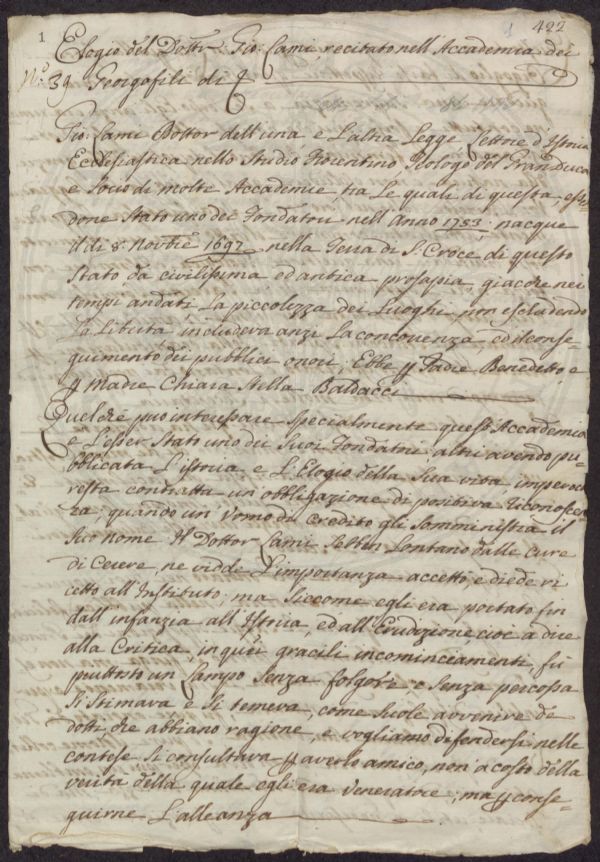 1
1 422
Elogio del Dottr. Gio: Lami, recitato nell'Accademia dei
No. 39 Georgofili di
Gio: Lami Dottor dell'una e L'altra Legge, Lettore d'Istoria
Ecclesiastica nello Studio Fiorentino, Teologo del Gran Duca
e Socio di molte Accademie, tra Le quali di questa, essen
done Stato uno dei Fondatori nell'Anno 1753, nacque
il dì 8 Novbre 1697 nella Terra di S. Croce di questo
Stato da civilissima ed antica prosapia, giacchè nei
tempi andati, La piccolezza dei Luoghi non escludendo
La Libertà, includeva anzi La concorrenza, ed il conse
guimento dei pubblici onori, Ebbe p Padre Benedetto e
p Madre Chiara Stella Baldacci
Quel che può interessare specialmente questa Accademia
è L'esser Stato uno dei Suoi Fondatori, altri avendo pu=
bblicata L'istoria e L'Elogio della Sua vita, imperocc
resta contratta un'obbligazione di positiva riconoscen
za, quando un'Uomo di credito gli somministra il
Suo nome. Il Dottor Lami Sebben Lontano dalle cure
di Cerere, ne vidde L'importanza accettò, e diede ri
cetto all'Instituto, ma siccome egli era portato fin
dall'infanzia all'Istoria, ed all'Erudizione, cioè a dire
alla Critica, in quei gracili incominciamenti, fù
piuttosto un Lampo Senza folgore e Senza percossa
Si Stimava e Si temeva, come Suole avvenire de
dotti, che abbiano ragione, e vogliamo difendersi, nelle
contese si consultava p averlo amico, non a costo della
verità della quale egli era veneratore, ma p conse=
guirne L'alleanza